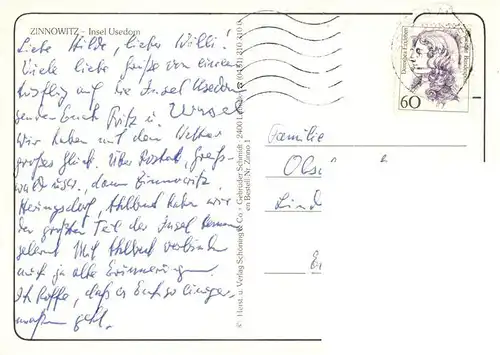 ZINNOWITZ – Insel Usedom
Liebe Hilde, lieber Willi!
Viele liebe Grüße von einem
Ausflug auf die Insel Usedom
senden Euch Fritz u. Ursel
Wir haben mit dem Wetter
großes Glück. Über Rostock, Greifs-
wald usw., dann Zinnowitz,
Heringsdorf, Ahlbeck haben wir
den größten Teil der Insel kennen
gelernt. Mit Ahlbeck verbinden
mich ja alte Erinnerungen.
Ich hoffe, daß es Euch so einiger-
maßen geht.
© Horst u. Verlag Schöning & Co · Gebrüder Schmidt · 2400
Bestell-Nr. Zinno 1
60
Familie
Ols
Lind